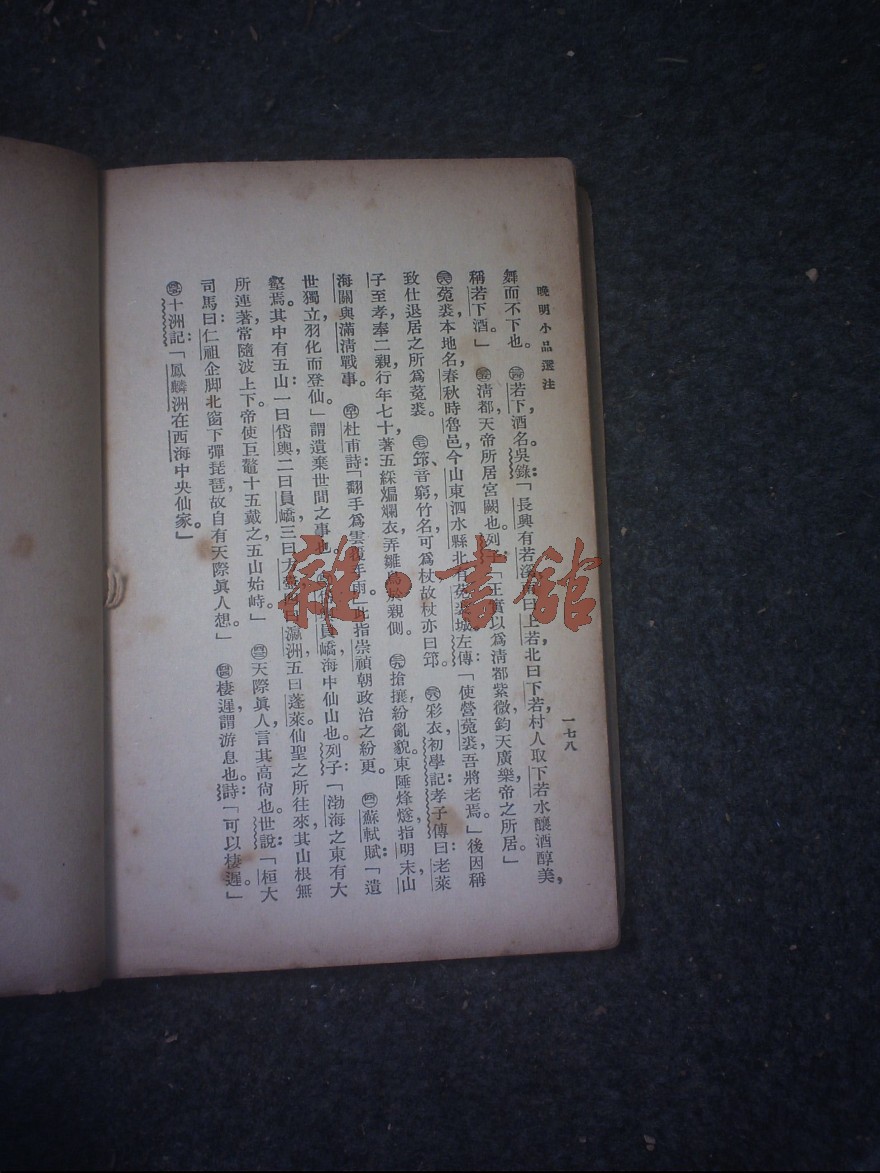 晚明小品選注
一七八
舞而不下也。若下，酒名。吳錄：「長興有若溪，南曰上若，北曰下若，村人取下若水釀酒，醇美，
稱若下酒。」淸都，天帝所居宮闕也。列子：「王實以爲淸都紫微，鈞天廣樂，帝之所居。」
菟裘，本地名，春秋時魯邑，今山東泗水縣北有菟裘城。左傳：「使營菟裘，吾將老焉。」後因稱
致仕退居之所爲菟裘。筇，音窮，竹名，可爲杖，故杖亦曰筇。彩衣，初學記：孝子傳曰：老萊
子至孝，奉二親，行年七十，著五綵斒斕衣，弄雛鳥於親側。搶攘，紛亂貌。東陲烽燧，指明末山
海關與滿淸戰事。杜甫詩：「翻手爲雲覆手雨」此指崇禎朝政治之紛更。蘇軾賦：「遺
世獨立，羽化而登仙」謂遺棄世間之事也。員嶠，海中仙山也。列子：「渤海之東有大
壑焉。其中有五山：一曰岱輿，二曰員嶠，三曰方壺，瀛洲，五曰蓬萊。仙聖之所往來，其山根無
所連著，常隨波上下。帝使巨鼇十五戴之，五山始峙。」天際眞人，言其高尙也。世說：「桓大
司馬曰：仁祖企脚北窗下彈琵琶，故自有天際眞人想。」棲遲，謂游息也。詩：「可以棲遲。」
十洲記：「鳳麟洲在西海中央，仙家。」
雜·書館